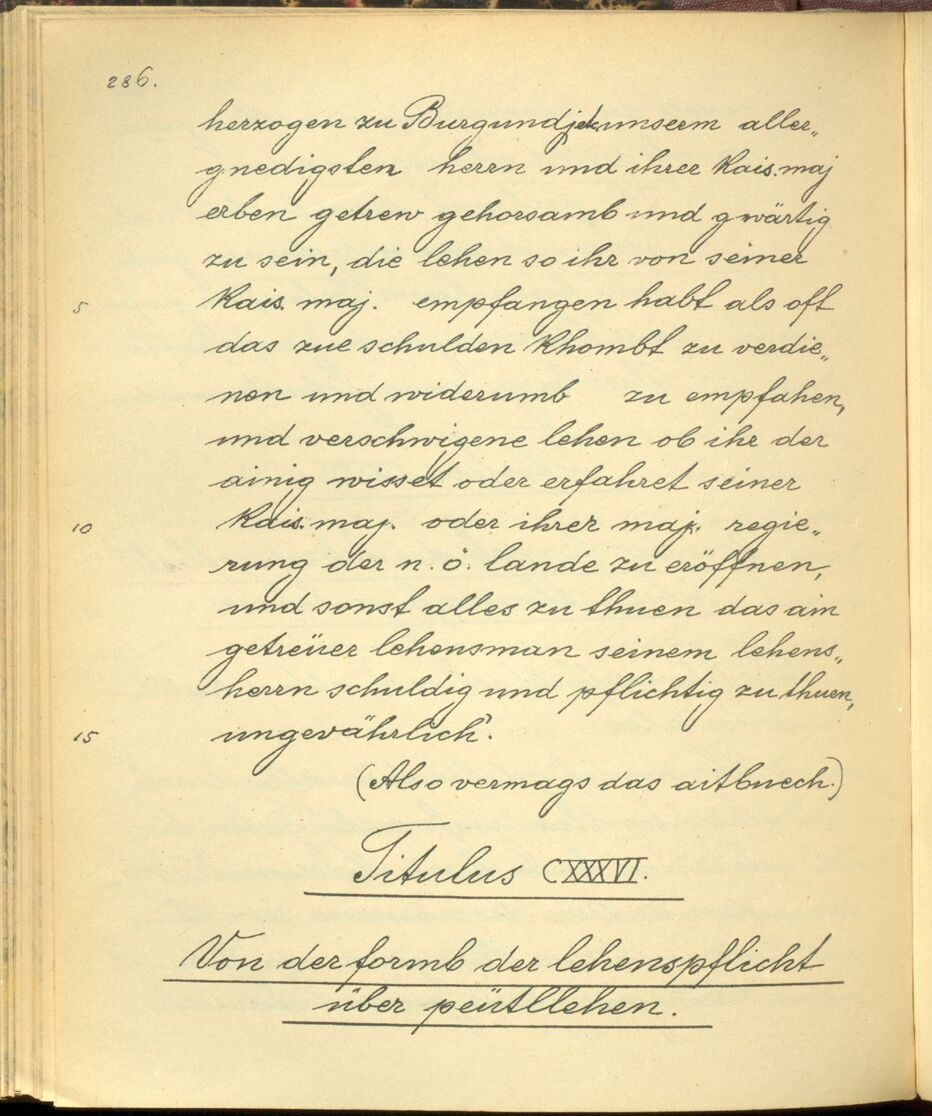 286.
herzogen zu Burgund unserm aller„
gnedigsten herrn und ihrer Kais. maj
erben getrew gehorsamb und gwärtig
zu sein, die lehen so ihr von seiner
5 Kais. maj. empfangen habt als oft
das zue schulden Khombt zu verdie„
nen und widerumb zu empfahen,
und verschwigene lehen ob ihr der
ainig wisset oder erfahret seiner
10 Kais. maj. oder ihrer maj. regie„
rung der n. ö. lande zu eröffnen,
und sonst alles zu thuen das ain
getreüer lehensman seinem lehens„
herrn schuldig und pflichtig zu thuen,
15 ungevährlich.
(Also vermags das aitbuech.)
Titulus CXXXVI.
Von der formb der lehenspflicht
über peütllehen.